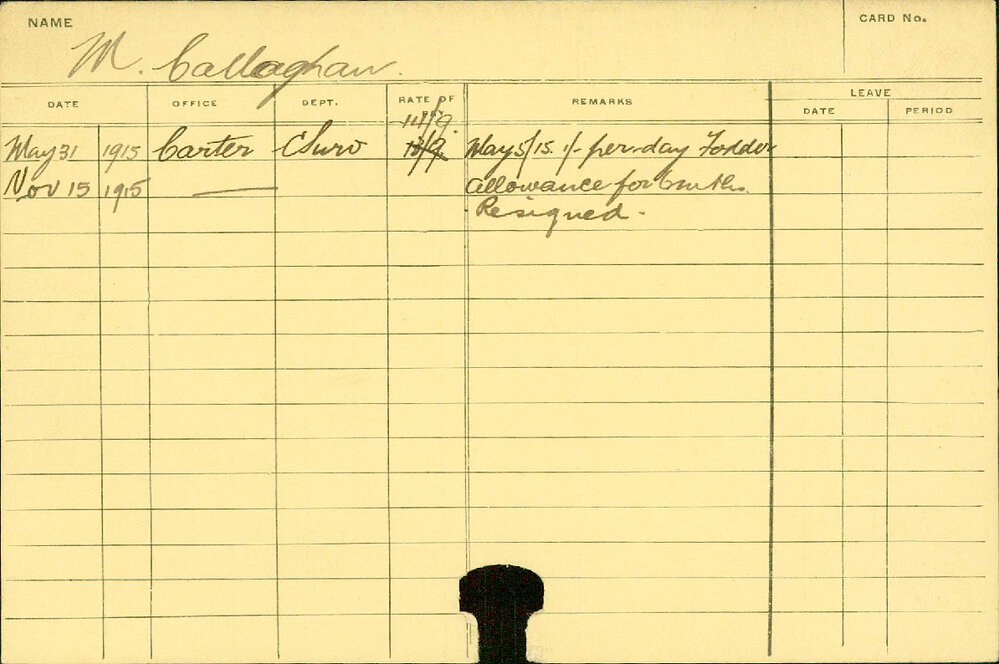 NAME
CARD No.
M. Callaghan.
DATE OFFICE DEPT. RATE OF REMARKS LEAVE
DATE PERIOD
May 31 1915 Carter CSurv 13/9 May 5/15. 1/- per day Fodder
Nov 15 1915 — allowance for 6 mths.
Resigned.